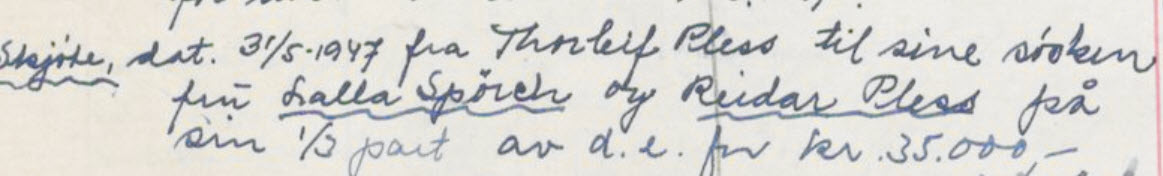 Skjøte, dat. 31/5-1947 fra Thorleif Pless til sine søsken
fru Lalla Spörch og Reidar Pless på
sin 1/3 part av d.e. for kr. 35.000,-